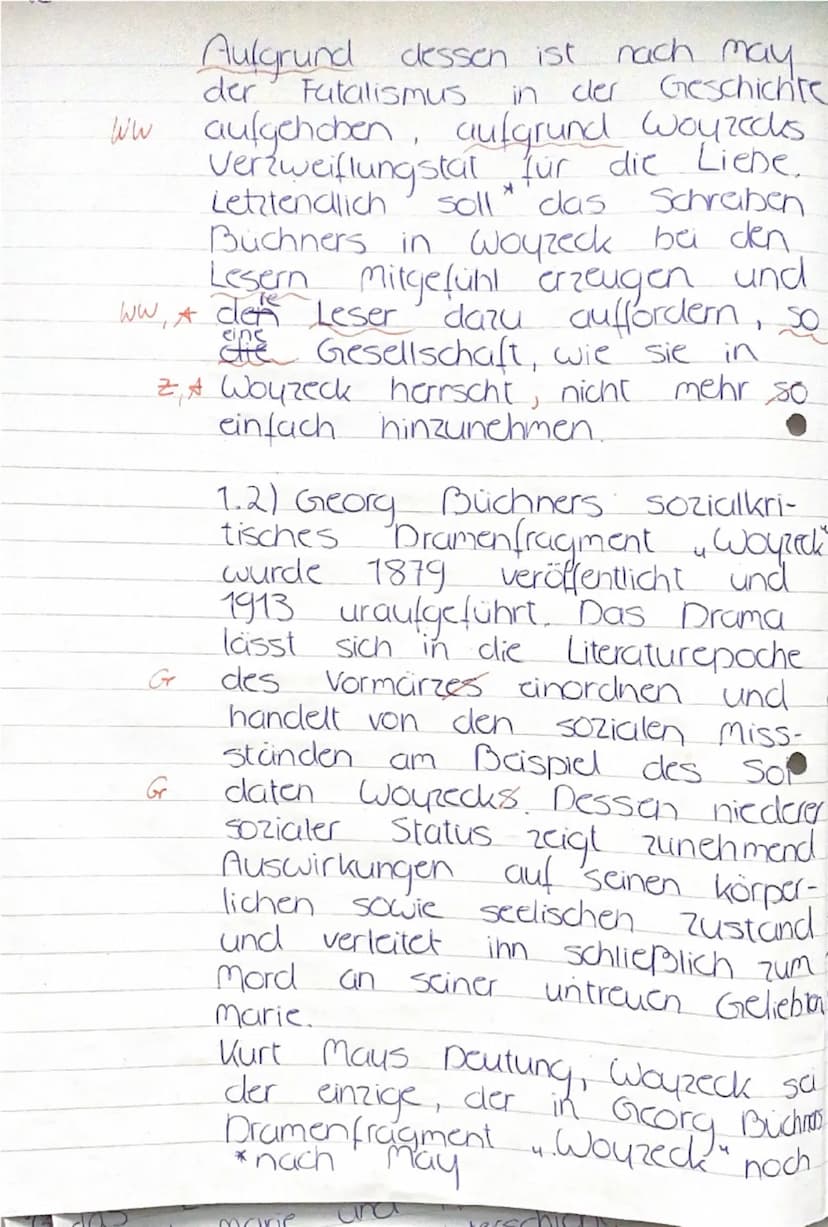 Aufgrund dessen ist nach May
der Fatalismus in der Geschichte
WW aufgehoben, aufgrund Woyzecks
Verzweiflungstat für die Liebe.
Letztendlich soll* das Schreiben
Büchners in Woyzeck bei den
Lesern Mitgefühl erzeugen und
WW, A den Leser dazu auffordern, so
eine
die Gesellschaft, wie sie in
Z, A Woyzeck herrscht, nicht mehr so
einfach hinzunehmen.
1.2) Georg Büchners sozialkri-
tisches Dramenfragment „Woyzeck"
wurde 1879 veröffentlicht und
1913 uraufgeführt. Das Drama
lässt sich in die Literaturepoche
Gr des Vormärzes einordnen und
handelt von den sozialen Miss-
ständen am Beispiel des Sol
Gr daten Woyzecks. Dessen niederer
sozialer Status zeigt zunehmend
Auswirkungen auf seinen körper-
lichen sowie seelischen Zustand
und verleitet ihn schließlich zum
Mord an seiner untreuen Geliebten
Marie.
Kurt Mays Deutung, Woyzeck sei
der einzige, der in Georg Büchners
Dramenfragment „Woyzeck" noch
*nach May
Marie und